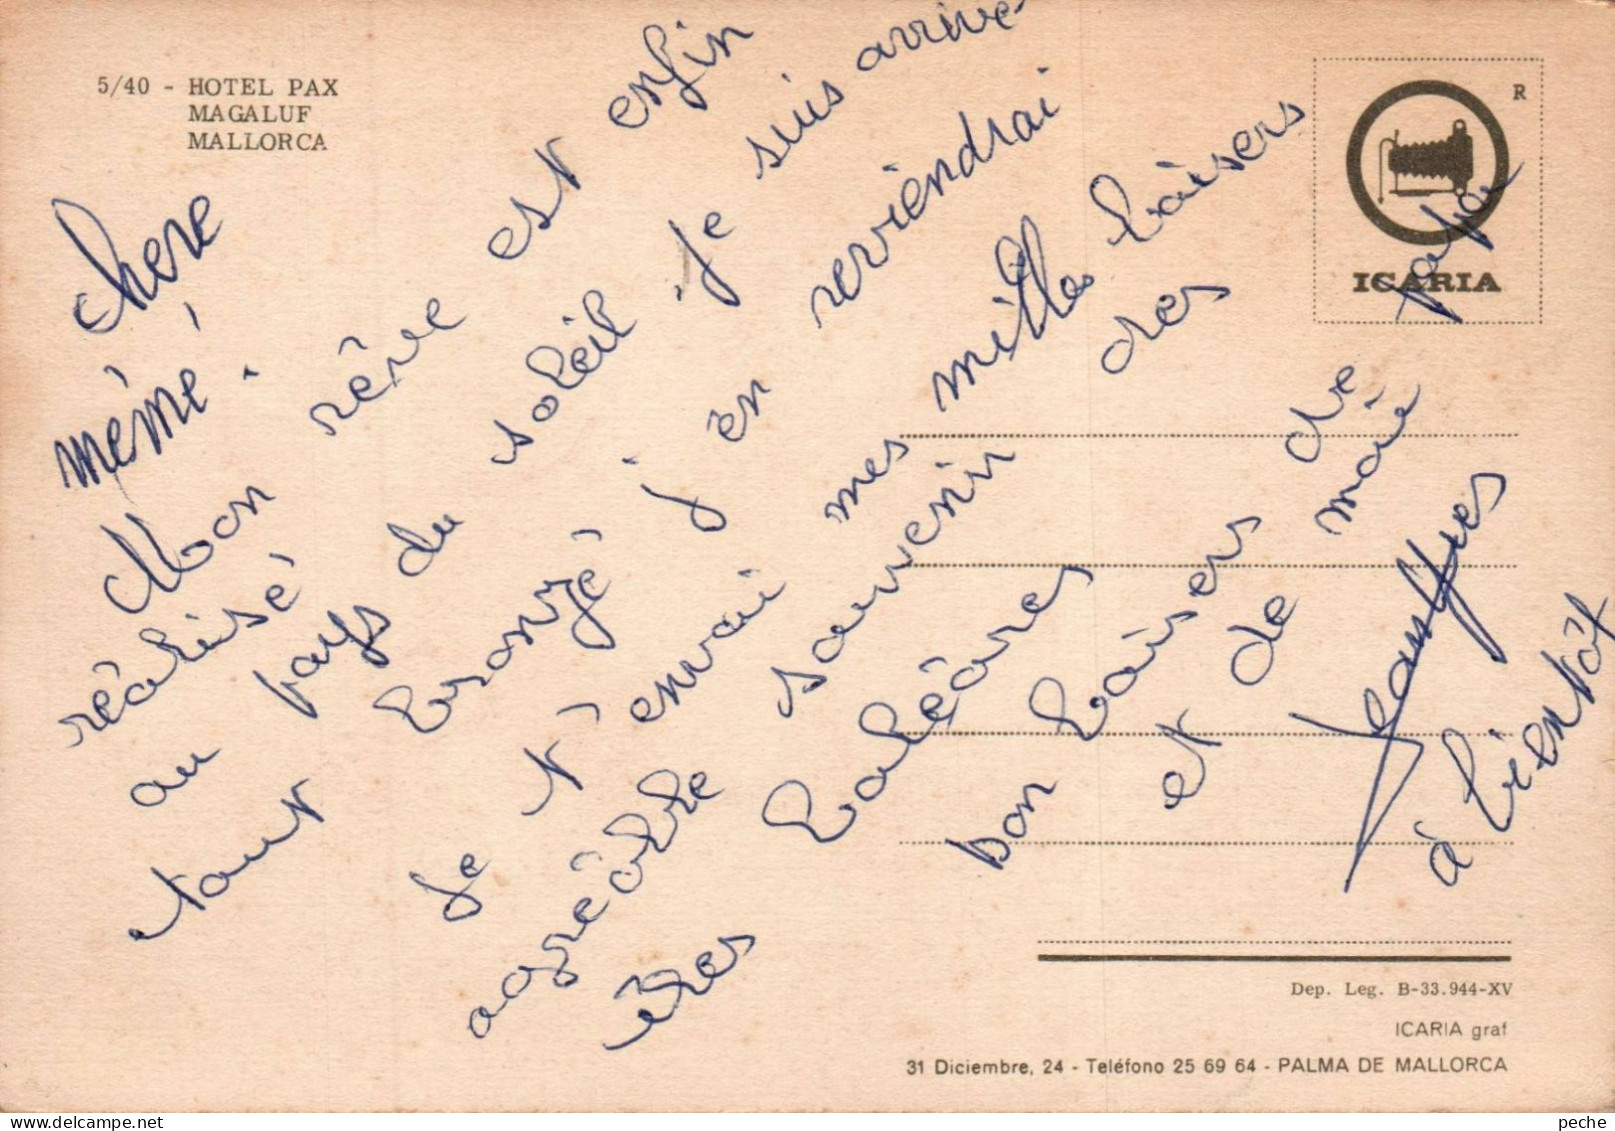 5/40 - HOTEL PAX
MAGALUF
MALLORCA
R
ICARIA
chere
mémé.
Mon rêve est enfin
réalisé
au pays du soleil. Je suis arrivé
tout bronzé j'en reviendrai
Je t'envoi mes mille baisers
agréable souvenir des
îles baléares
bon baisers de papa
et de marie
à bientôt
Dep. Leg. B-33.944-XV
ICARIA graf
31 Diciembre, 24 - Teléfono 25 69 64 - PALMA DE MALLORCA
delcampe.net
peche